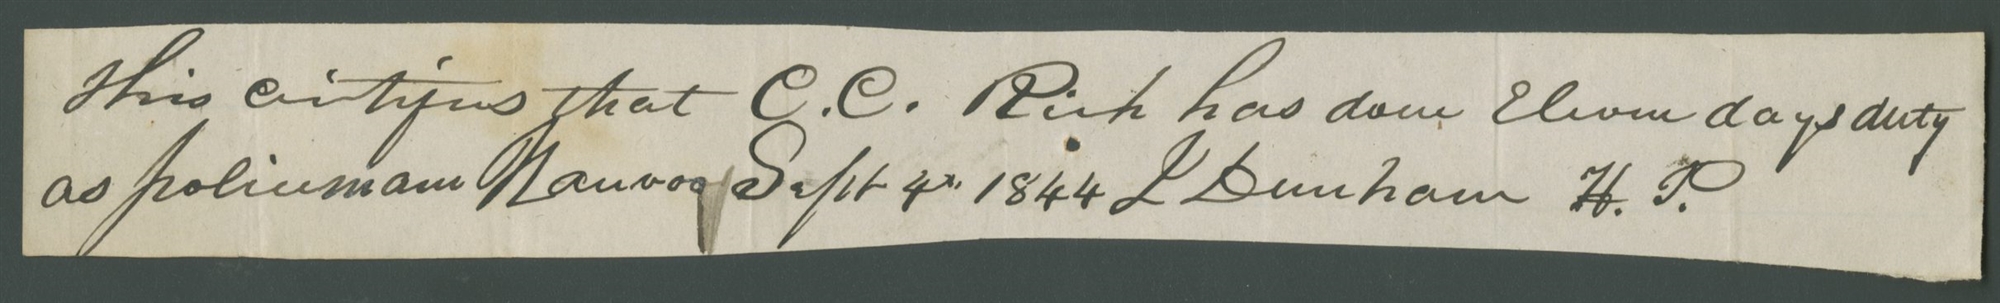 this certifyes that C. C. Rich has done Eleven days duty
as policeman Nauvoo Sept 4th 1844 J Dunham H. P.